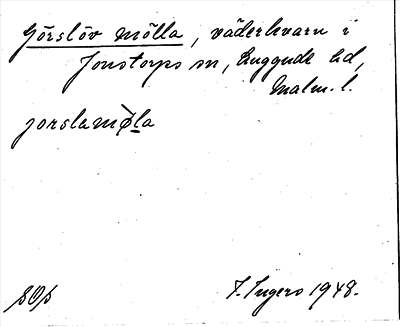 Görslöv mölla, väderkvarn i
Jonstorps sn, Luggude hd,
Malm. l.
jorslamø̀la
SOp
I. Ingers 1948.